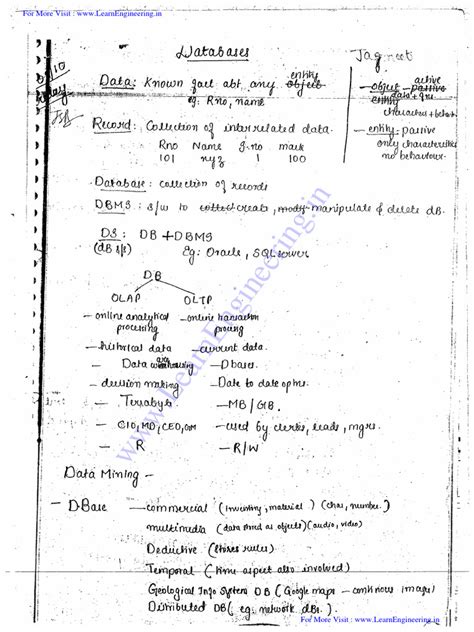 For More Visit : www.LearnEngineering.in
Databases
Data: Known fact abt any object entity
eg: Rno, name
Record: Collection of interrelated data.
Rno Name q.no mark
101 xyz 1 100
Database: collection of records
DBMS: s/w to collect create, modify manipulate & delete dB.
DS: DB + DBMS
(dB s/s) Eg: Oracle, SQL server
object - passive active
data + qns
entity
characters + behav
- entity - passive
only characteristics
no behaviour.
DB
OLAP OLTP
- online analytical - online transaction
processing
- historical data - current data.
- Data warehousing - Dbases.
- decision making - Date to date opns.
- Terrabyte - MB/GB.
- CIO, MD, CEO, GM - used by clerks, leads, mgrs.
- R - R/W
Data Mining -
- DBase - commercial (inventory, material) (char, number.)
multimedia (data stored as objects) (audio, video)
Deductive (stores rules)
Temporal (time aspect also involved)
Geological Info System DB (Google maps - continous images)
Distributed DB (eg: network dBs.)
www.LearnEngineering.in
For More Visit : www.LearnEngineering.in